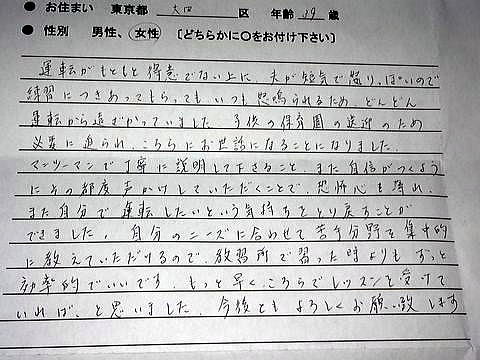 ● お住まい 東京都 大田 区 年齢 39 歳
● 性別 男性、女性 〔どちらかに○をお付け下さい〕
運転がもともと得意でない上に、夫が短気で怒りっぽいので
練習につきあってもらってもいつも怒鳴られるため、どんどん
運転から遠ざかっていました。子供の保育園の送迎のため
必要に迫られ、こちらにお世話になることになりました。
マンツーマンで丁寧に説明して下さること、また自信がつくよう
にその都度声かけしていただくことで、恐怖心も薄れ、
また自分で運転したいという気持ちをとり戻すことが
できました。自分のニーズに合わせて苦手分野を集中的
に教えていただけるので、教習所で習った時よりも ずっと
効率的でいいです。もっと早くこちらでレッスンを受けて
いれば、と思いました。今後ともよろしくお願い致します